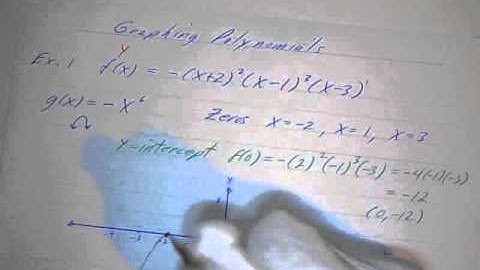 Graphing Polynomials
Y
Ex. 1 f(x) = -(x+2)²(x-1)³(x-3)¹
g(x) = -x⁶
Zeros x=-2, x=1, x=3
Y-intercept f(0) = -(2)²(-1)³(-3) = -4(-1)(-3)
= -12
(0,-12)
Y